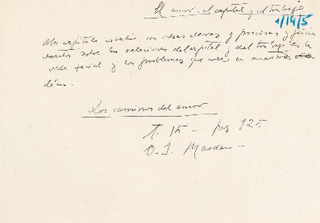 El amor, el capital y el trabajo
1/14/5
dos capítulos escritos con ideas claras y precisas y juicios
sobre las relaciones del capital y del trabajo en la
vida social y los problemas que en nuestros
días.
Los caminos del amor
T. 15 - pag. 125
O. S. Marden